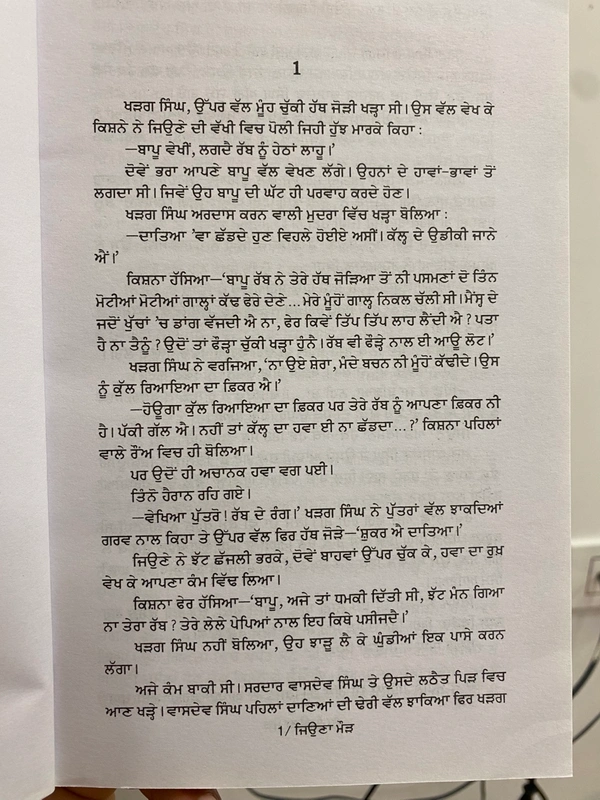 1
ਖੜਗ ਸਿੰਘ, ਉੱਪਰ ਵੱਲ ਮੂੰਹ ਚੁੱਕੀ ਹੱਥ ਜੋੜੀ ਖੜ੍ਹਾ ਸੀ। ਉਸ ਵੱਲ ਵੇਖ ਕੇ
ਕਿਸ਼ਨੇ ਨੇ ਜਿਉਣੇ ਦੀ ਵੱਖੀ ਵਿਚ ਪੋਲੀ ਜਿਹੀ ਹੁੱਝ ਮਾਰਕੇ ਕਿਹਾ :
—ਬਾਪੂ ਵੇਖੀਂ, ਲਗਦੈ ਰੱਬ ਨੂੰ ਹੇਠਾਂ ਲਾਹੂ।’
ਦੋਵੇਂ ਭਰਾ ਆਪਣੇ ਬਾਪੂ ਵੱਲ ਵੇਖਣ ਲੱਗੇ। ਉਹਨਾਂ ਦੇ ਹਾਵਾਂ-ਭਾਵਾਂ ਤੋਂ
ਲਗਦਾ ਸੀ। ਜਿਵੇਂ ਉਹ ਬਾਪੂ ਦੀ ਘੱਟ ਹੀ ਪਰਵਾਹ ਕਰਦੇ ਹੋਣ।
ਖੜਗ ਸਿੰਘ ਅਰਦਾਸ ਕਰਨ ਵਾਲੀ ਮੁਦਰਾ ਵਿੱਚ ਖੜ੍ਹਾ ਬੋਲਿਆ :
—ਦਾਤਿਆ ’ਵਾ ਛੱਡਦੇ ਹੁਣ ਵਿਹਲੇ ਹੋਈਏ ਅਸੀਂ। ਕੱਲ੍ਹ ਦੇ ਉਡੀਕੀ ਜਾਨੇ
ਐਂ।’
ਕਿਸ਼ਨਾ ਹੱਸਿਆ—‘ਬਾਪੂ ਰੱਬ ਨੇ ਤੇਰੇ ਹੱਥ ਜੋੜਿਆ ਤੋਂ ਨੀ ਪਸਮਣਾਂ ਦੋ ਤਿੰਨ
ਮੋਟੀਆਂ ਮੋਟੀਆਂ ਗਾਲ੍ਹਾਂ ਕੱਢ ਫੇਰੇ ਦੇਣੇ... ਮੇਰੇ ਮੂੰਹੋਂ ਗਾਲ੍ਹ ਨਿਕਲ ਚੱਲੀ ਸੀ। ਮੈਂਸ੍ਹ ਦੇ
ਜਦੋਂ ਖੁੱਚਾਂ ’ਚ ਡਾਂਗ ਵੱਜਦੀ ਐ ਨਾ, ਫੇਰ ਕਿਵੇਂ ਤਿੱਪ ਤਿੱਪ ਲਾਹ ਲੈਂਦੀ ਐ ? ਪਤਾ
ਹੈ ਨਾ ਤੈਨੂੰ ? ਉਦੋਂ ਤਾਂ ਫੌੜ੍ਹਾ ਚੁੱਕੀ ਖੜ੍ਹਾ ਹੁੰਨੈ। ਰੱਬ ਵੀ ਫੌੜ੍ਹੇ ਨਾਲ ਈ ਆਊ ਲੋਟ।’
ਖੜਗ ਸਿੰਘ ਨੇ ਵਰਜਿਆ, ‘ਨਾ ਉਏ ਸ਼ੇਰਾ, ਮੰਦੇ ਬਚਨ ਨੀ ਮੂੰਹੋਂ ਕੱਢੀਦੇ। ਉਸ
ਨੂੰ ਕੁੱਲ ਰਿਆਇਆ ਦਾ ਫ਼ਿਕਰ ਐ।’
—ਹੋਊਗਾ ਕੁੱਲ ਰਿਆਇਆ ਦਾ ਫ਼ਿਕਰ ਪਰ ਤੇਰੇ ਰੱਬ ਨੂੰ ਆਪਣਾ ਫ਼ਿਕਰ ਨੀ
ਹੈ। ਪੱਕੀ ਗੱਲ ਐ। ਨਹੀਂ ਤਾਂ ਕੱਲ੍ਹ ਦਾ ਹਵਾ ਈ ਨਾ ਛੱਡਦਾ...?’ ਕਿਸ਼ਨਾ ਪਹਿਲਾਂ
ਵਾਲੇ ਰੌਂਅ ਵਿਚ ਹੀ ਬੋਲਿਆ।
ਪਰ ਉਦੋਂ ਹੀ ਅਚਾਨਕ ਹਵਾ ਵਗ ਪਈ।
ਤਿੰਨੋ ਹੈਰਾਨ ਰਹਿ ਗਏ।
—ਵੇਖਿਆ ਪੁੱਤਰੋ ! ਰੱਬ ਦੇ ਰੰਗ।’ ਖੜਗ ਸਿੰਘ ਨੇ ਪੁੱਤਰਾਂ ਵੱਲ ਝਾਕਦਿਆਂ
ਗਰਵ ਨਾਲ ਕਿਹਾ ਤੇ ਉੱਪਰ ਵੱਲ ਫਿਰ ਹੱਥ ਜੋੜੇ—‘ਸ਼ੁਕਰ ਐ ਦਾਤਿਆ।’
ਜਿਉਣੇ ਨੇ ਝੱਟ ਛੱਜਲੀ ਭਰਕੇ, ਦੋਵੇਂ ਬਾਹਵਾਂ ਉੱਪਰ ਚੁੱਕ ਕੇ, ਹਵਾ ਦਾ ਰੁਖ਼
ਵੇਖ ਕੇ ਆਪਣਾ ਕੰਮ ਵਿੱਢ ਲਿਆ।
ਕਿਸ਼ਨਾ ਫੇਰ ਹੱਸਿਆ—‘ਬਾਪੂ, ਅਜੇ ਤਾਂ ਧਮਕੀ ਦਿੱਤੀ ਸੀ, ਝੱਟ ਮੰਨ ਗਿਆ
ਨਾ ਤੇਰਾ ਰੱਬ ? ਤੇਰੇ ਲੇਲੇ ਪੇਪਿਆਂ ਨਾਲ ਇਹ ਕਿਥੇ ਪਸੀਜਦੈ।’
ਖੜਗ ਸਿੰਘ ਨਹੀਂ ਬੋਲਿਆ, ਉਹ ਝਾੜੂ ਲੈ ਕੇ ਘੁੰਡੀਆਂ ਇਕ ਪਾਸੇ ਕਰਨ
ਲੱਗਾ।
ਅਜੇ ਕੰਮ ਬਾਕੀ ਸੀ। ਸਰਦਾਰ ਵਾਸਦੇਵ ਸਿੰਘ ਤੇ ਉਸਦੇ ਲਠੈਤ ਪਿੜ ਵਿਚ
ਆਣ ਖੜ੍ਹੇ। ਵਾਸਦੇਵ ਸਿੰਘ ਪਹਿਲਾਂ ਦਾਣਿਆਂ ਦੀ ਢੇਰੀ ਵੱਲ ਝਾਕਿਆ ਫਿਰ ਖੜਗ
1/ ਜਿਉਣਾ ਮੌੜ